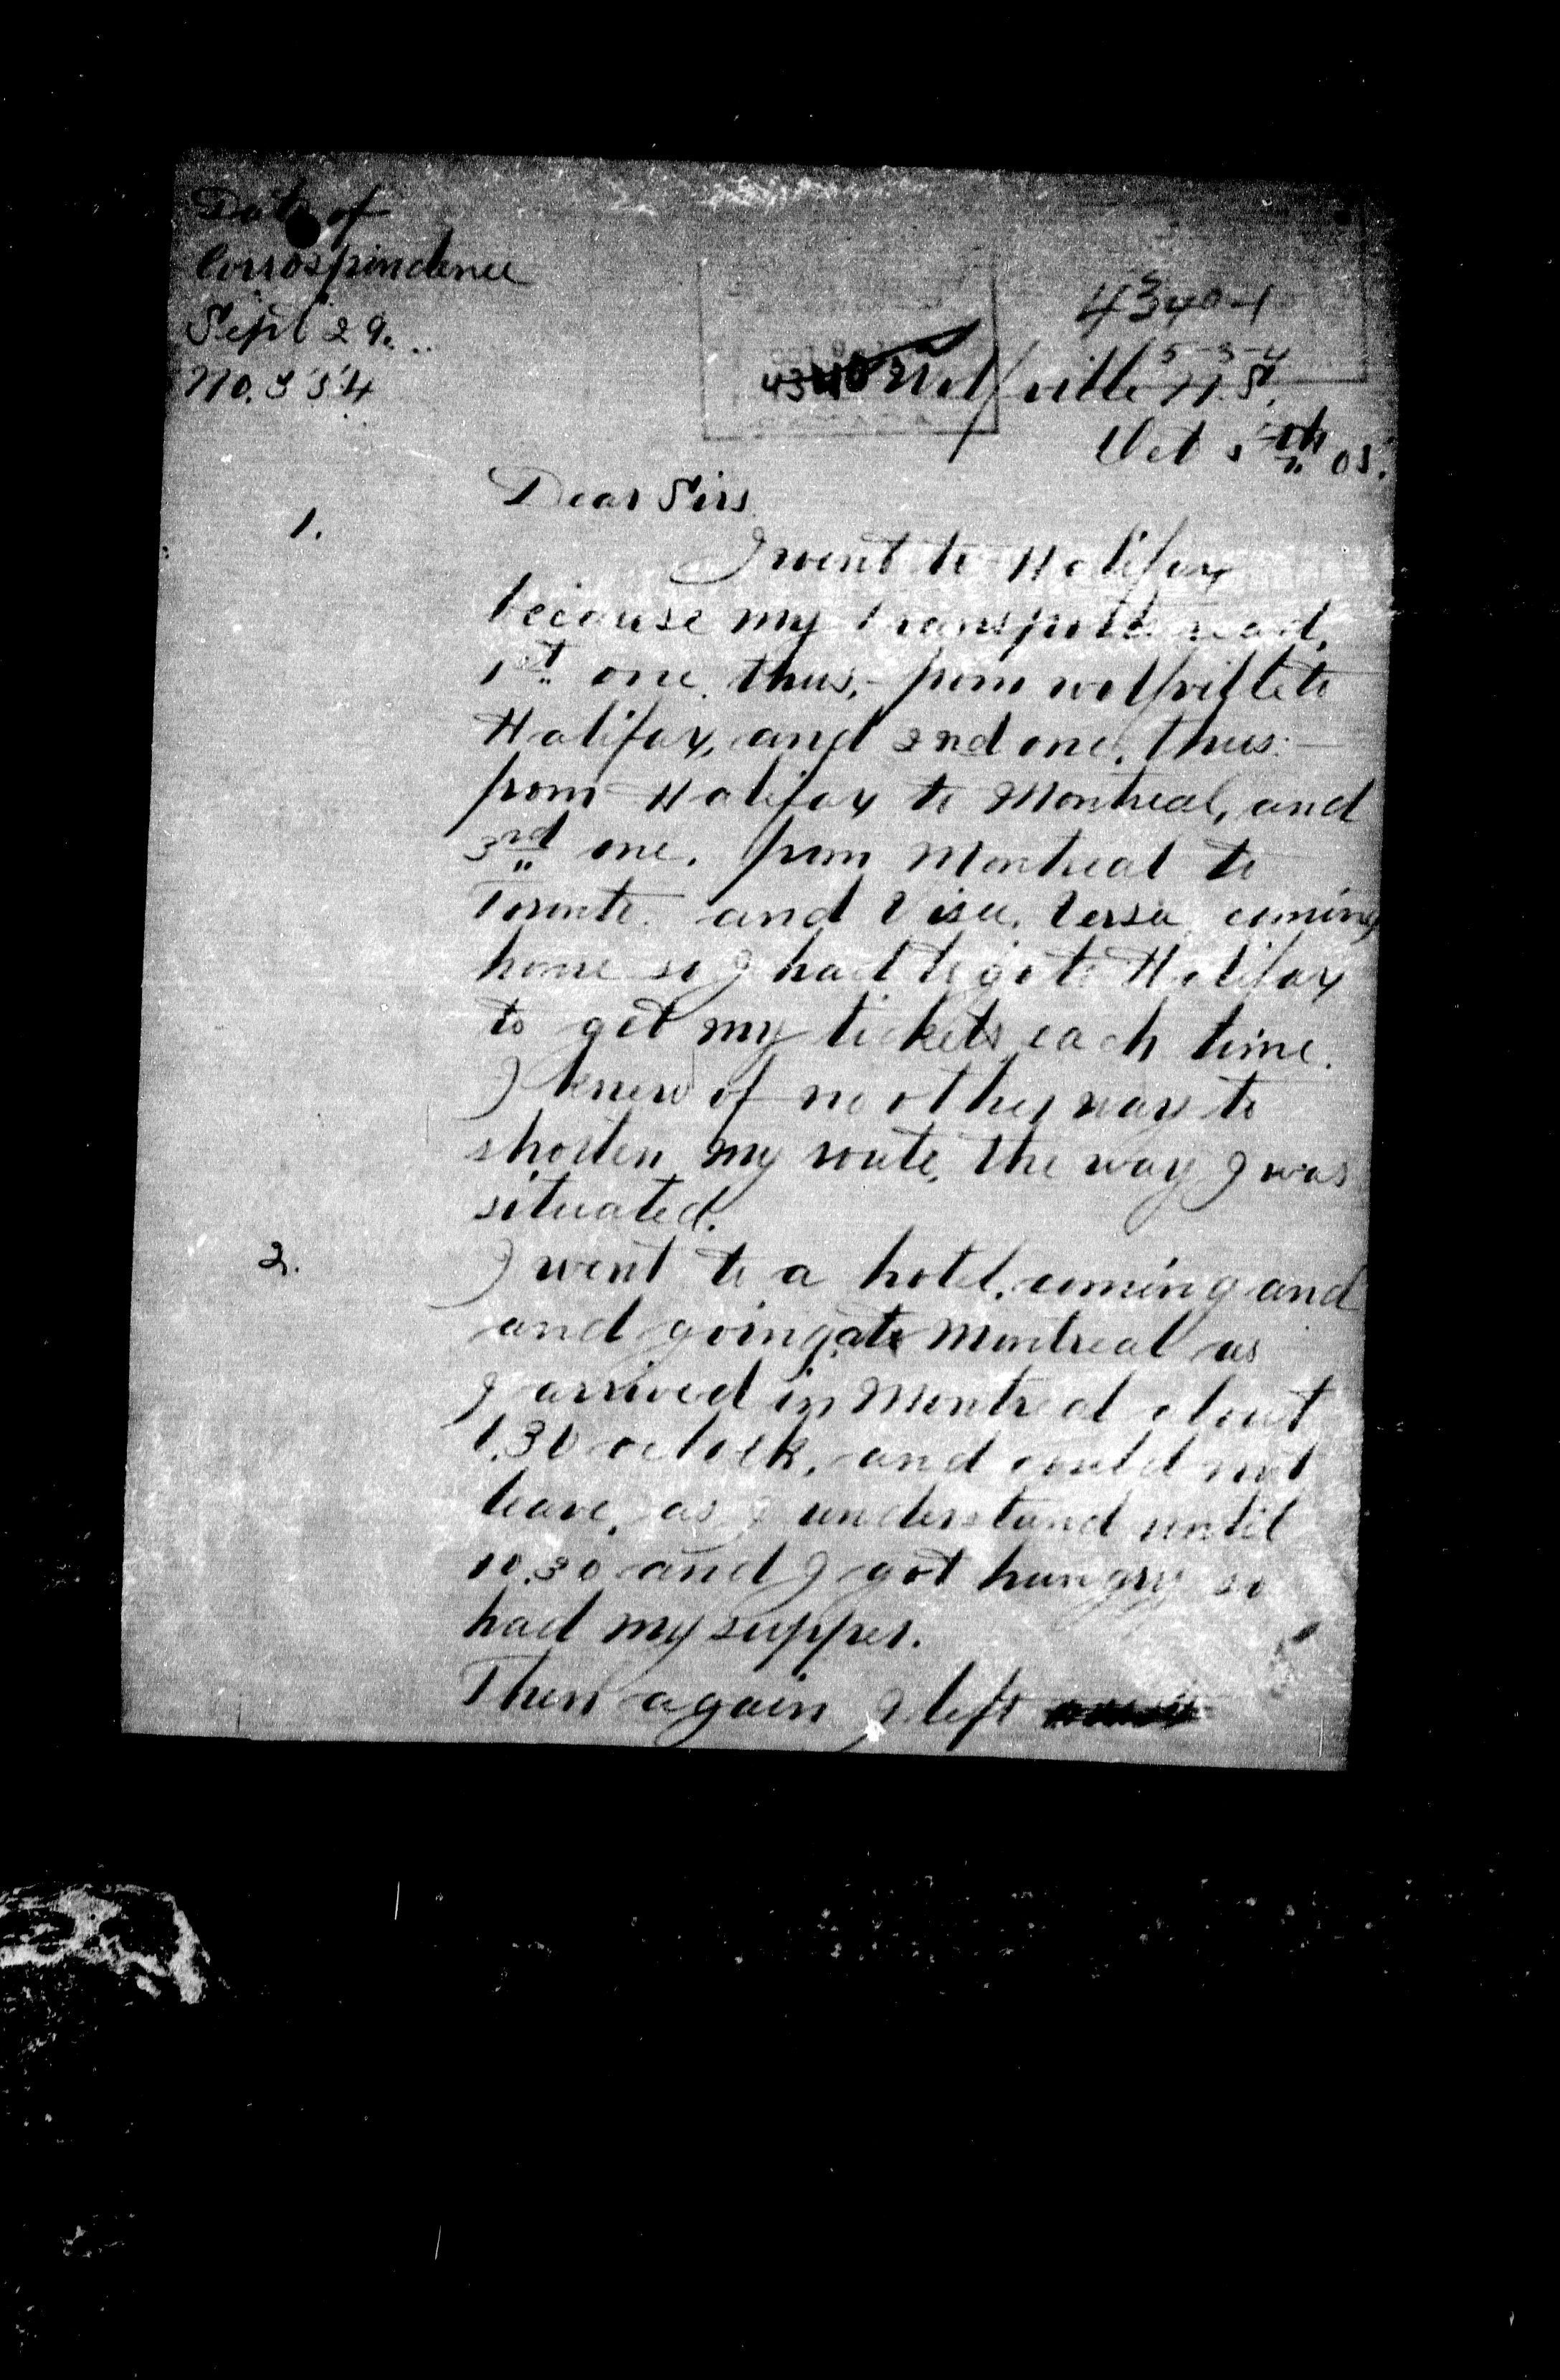 Date of
Corrospindence
Sept 29.
No. 334
4340-1
5-3-4
4340 Wolfville N.S.
Oct 5th 05.
Dear Sirs
1.
I went to Halifax
because my transports read,
1st one. thus,- from wolfville to
Halifax, and 2nd one, thus:-
from Halifax to Montreal, and
3rd one. from Montreal to
Toronto. and Visa. Versa coming
home so I had to go to Halifax
to get my tickets each time.
I knew of no other way to
shorten my route, the way I was
situated.
2.
I went to a hotel, coming and
and going, at Montreal as
I arrived in Montreal about
1.30 oclock, and could not
leave, as I understand until
10.30 and I got hungry so
had my supper.
Then again I left